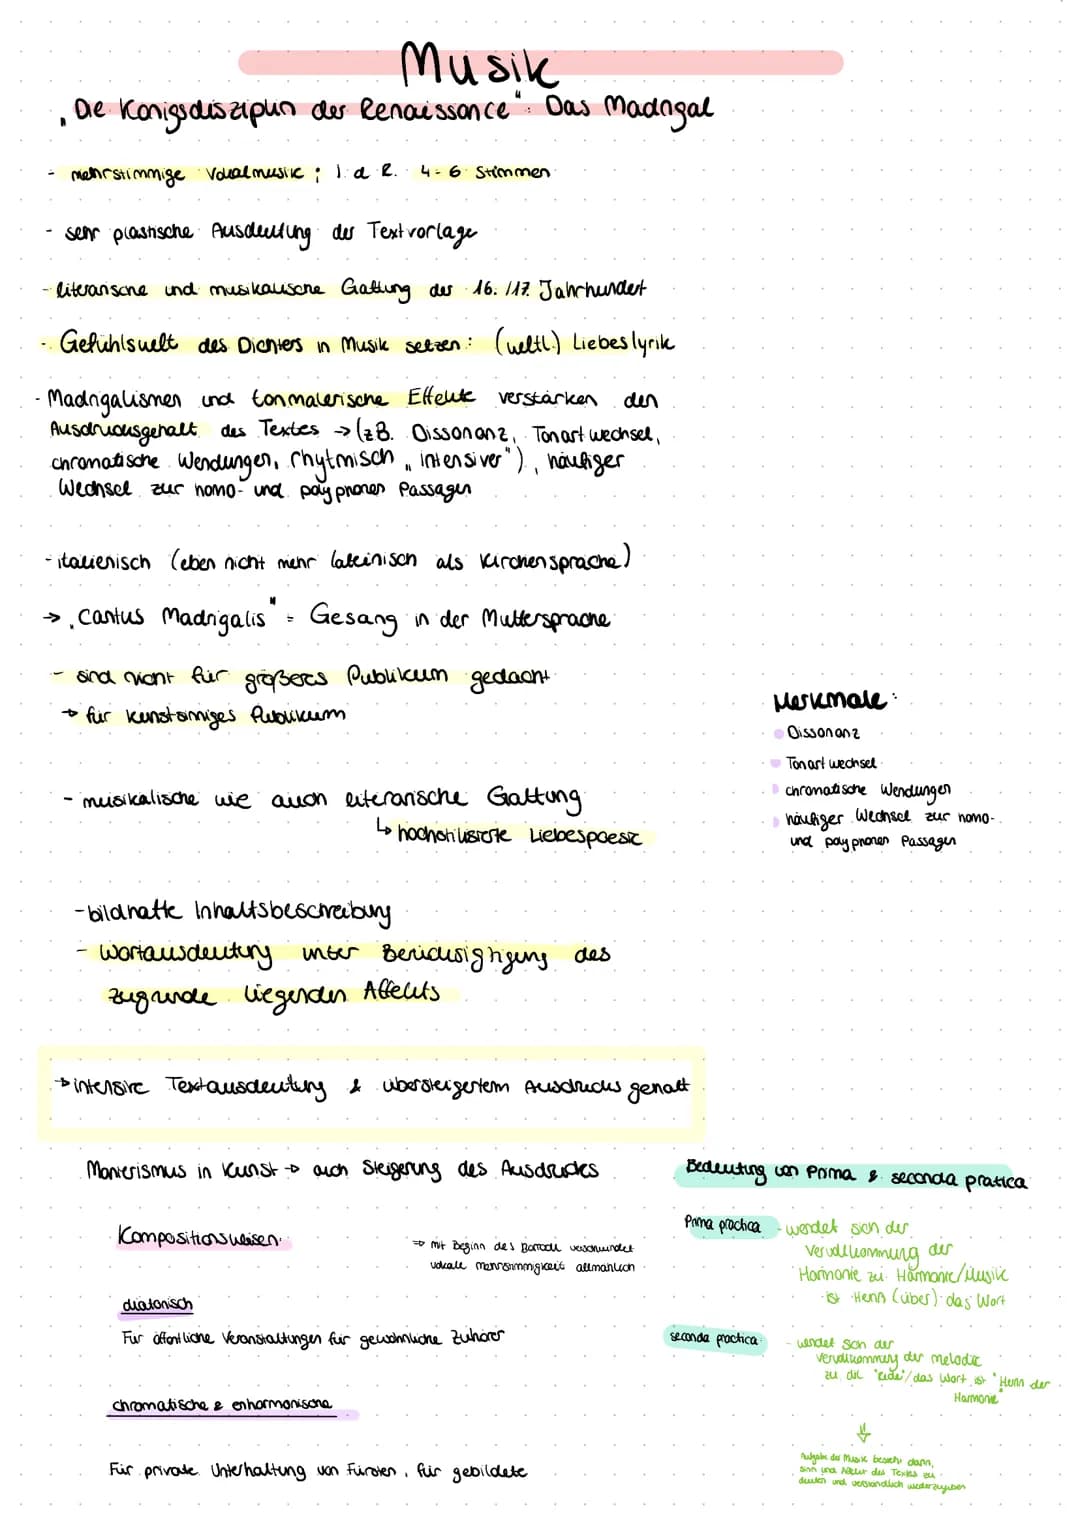 Musik
„Die Königsdisziplin der Renaissance": Das Madrigal
- mehrstimmige Vokalmusik; i. d. R. 4-6 Stimmen
- sehr plastische Ausdeutung der Textvorlage
- literarische und musikalische Gattung der 16./17. Jahrhundert
- Gefühlswelt des Dichters in Musik setzen: (weltl.) Liebeslyrik
- Madrigalismen und tonmalerische Effekte verstärken den
Ausdrucksgehalt des Textes → (z.B. Dissonanz, Tonart wechsel,
chromatische Wendungen, rhytmisch „intensiver"), häufiger
Wechsel zur homo- und polyphonen Passagen
- italienisch (eben nicht mehr lateinisch als Kirchensprache)
→ „Cantus Madrigalis" = Gesang in der Muttersprache
- sind nicht für größeres Publikum gedacht
→ für kunstsinniges Publikum
- musikalische wie auch literarische Gattung
↳ hochstilisierte Liebespoesie
- bildhafte Inhaltsbeschreibung
- Wortausdeutung unter Berücksigtigung des
zugrunde liegenden Affekts
→ intensive Textausdeutung & übersteigertem Ausdrucks gehalt
Manierismus in Kunst → auch Steigerung des Ausdrucks
Kompositionsweisen:
⇒ mit Beginn des Barock verschwindet
vokale Mehrstimmigkeit allmählich
diatonisch
Für öffentliche Veranstaltungen für gewöhnliche Zuhörer
chromatische & enharmonische
Für private Unterhaltung von Fürsten, für gebildete
Merkmale:
Dissonanz
Tonart wechsel
chromatische Wendungen
häufiger Wechsel zur homo-
und polyphonen Passagen
Bedeutung von Prima & seconda pratica
Prima practica - wendet sich der
Vervollkommnung der
Harmonie zu. Harmonie/Musik
ist Herr (über) das Wort
seconda practica: - wendet sich der
Vervollkommnung der Melodie
zu, die "Rede"/das Wort ist "Herrn der
Harmonie"
⇓
Aufgabe der Musik besteht darin,
Sinn und Affekt des Textes zu
deuten und verständlich wiederzugeben